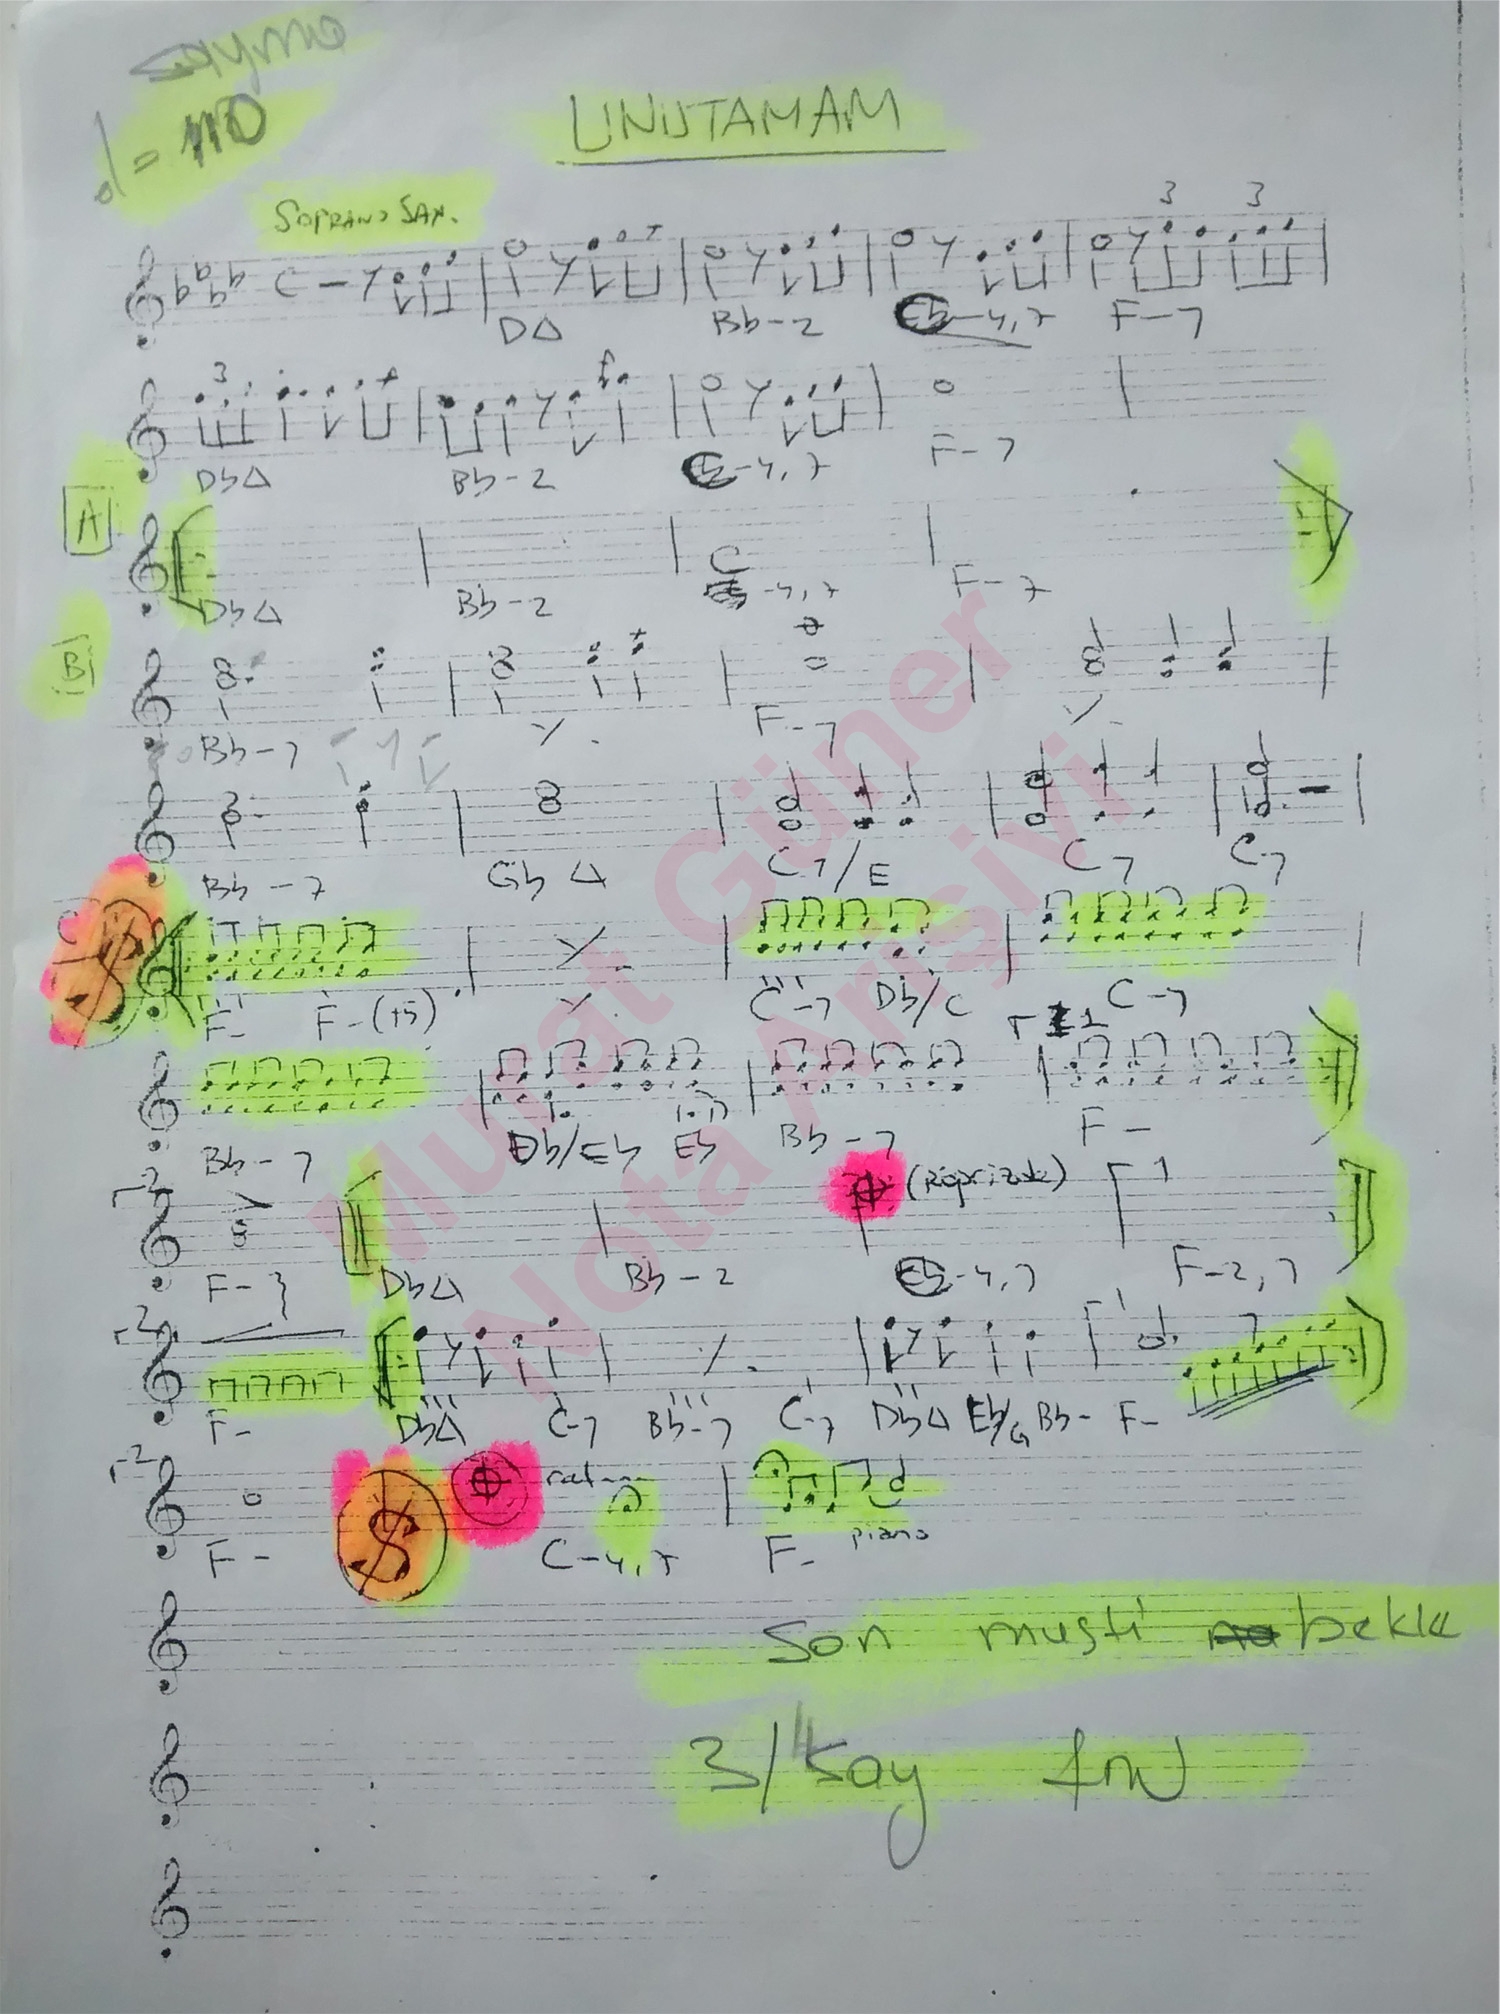 sayma
♩= 110
UNUTAMAM
SOPRANO SAX.
3 3
C
DΔ Bb-2 -4,7 F-7
3
DbΔ Bb-2 -4,7 F-7
A
C
DbΔ Bb-2 -4,7 F-7
B
Bb-7 F-7
Bb-7 GbΔ C7/E C7 C7
C
F- F-(+5) C-7 Db/C C-7
1
Bb-7 Db/Eb Eb Bb-7 F-
2 (Röprizde) 1
F- DbΔ Bb-2 -4,7 F-2,7
2 1 7
F- DbΔ C-7 Bb-7 C-7 DbΔ Eb/G Bb- F-
2
F- C-4,7 F- piano
Son muşti bekle
3/4 say
Murat Güner
Nota Arşivi